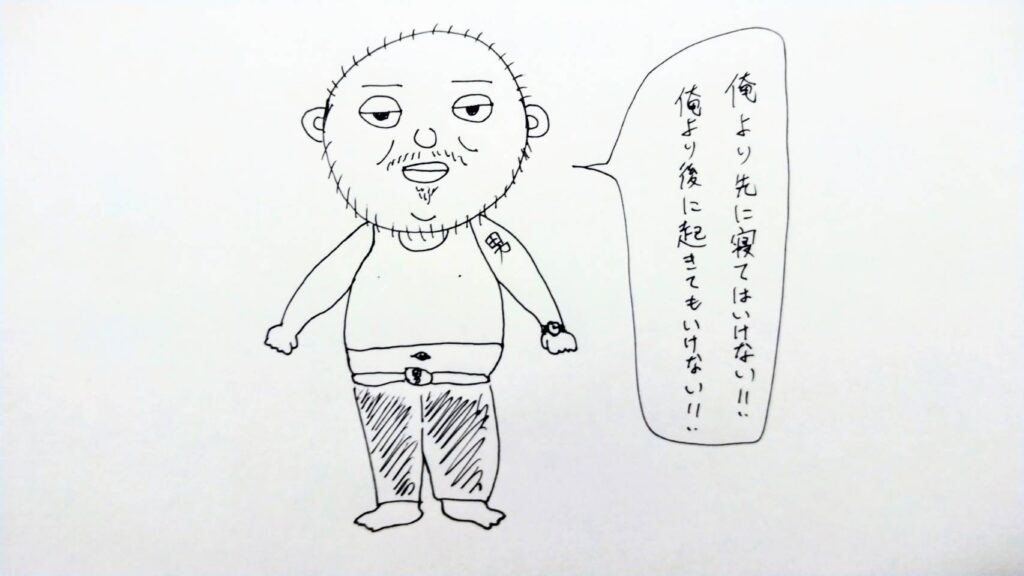 俺より先に寝てはいけない!!
俺より後に起きてもいけない!!
男